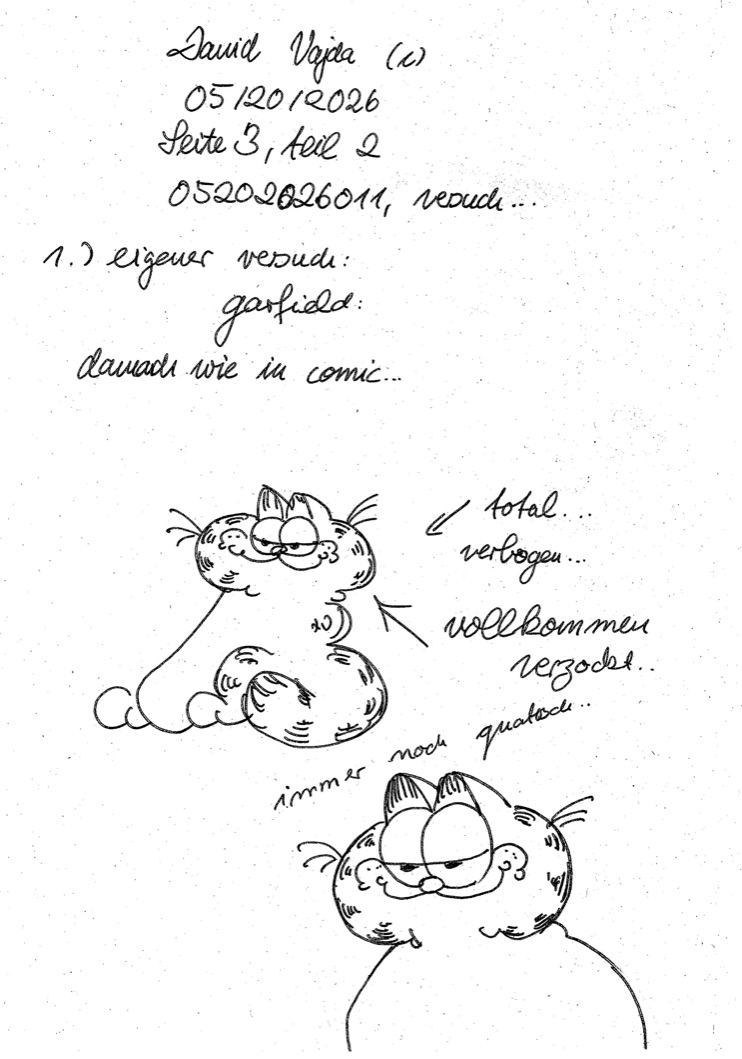 David Vajda (c)
05/20/2026
Seite 3, teil 2
05202026011, versuch...
1.) eigener versuch:
garfield:
danach wie in comic...
total...
verbogen...
vollkommen
verzockt..
immer noch quatsch..